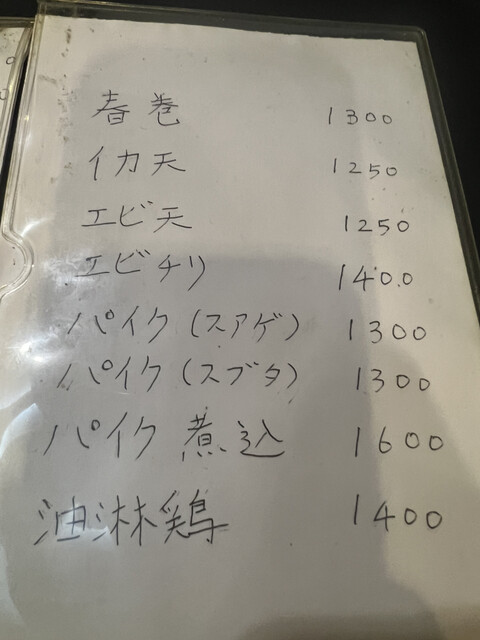 春巻 1300
イカ天 1250
エビ天 1250
エビチリ 1400
パイク(スアゲ) 1300
パイク(スブタ) 1300
パイク煮込 1600
油淋鶏 1400